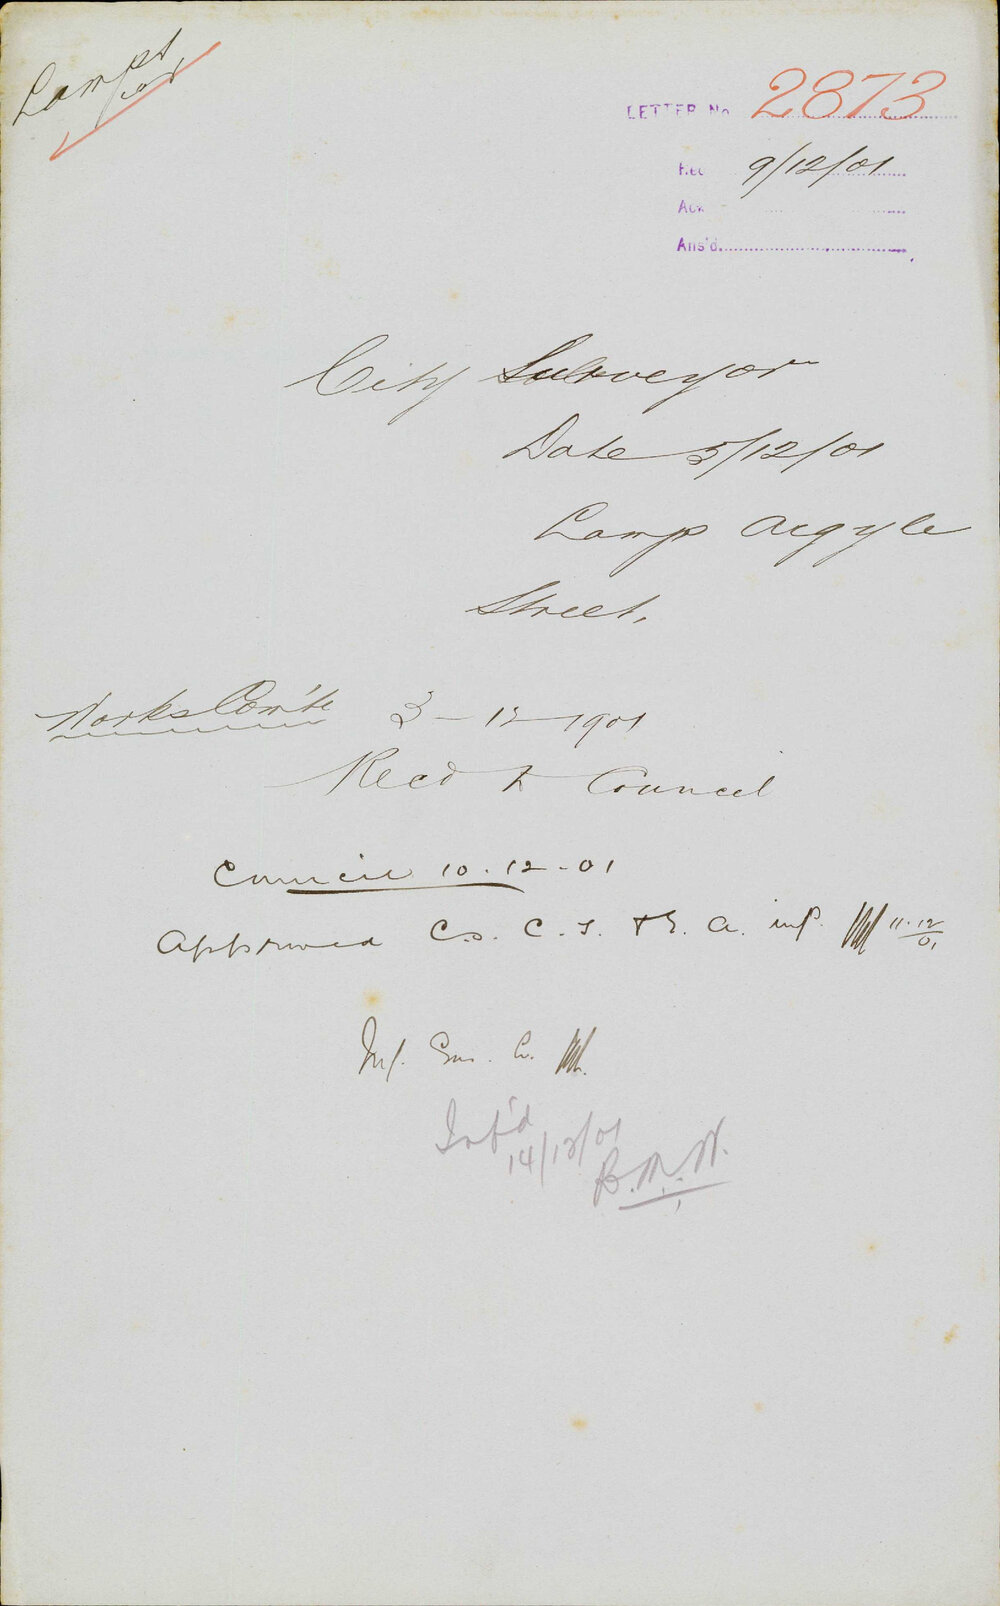 Lamps
1901
LETTER No 2873
Rec 9/12/01
Ack
Ans'd
City Surveyor
Date 5/12/01
Lamp Argyle
Street.
Works Com'te 3-12-1901
Recd to Council
Council 10.12.01
Approved C.S. C.T. & E. A. inf. 11.12/01
Inf. Gas. Co.
Inf'd
14/12/01
B.M.W.